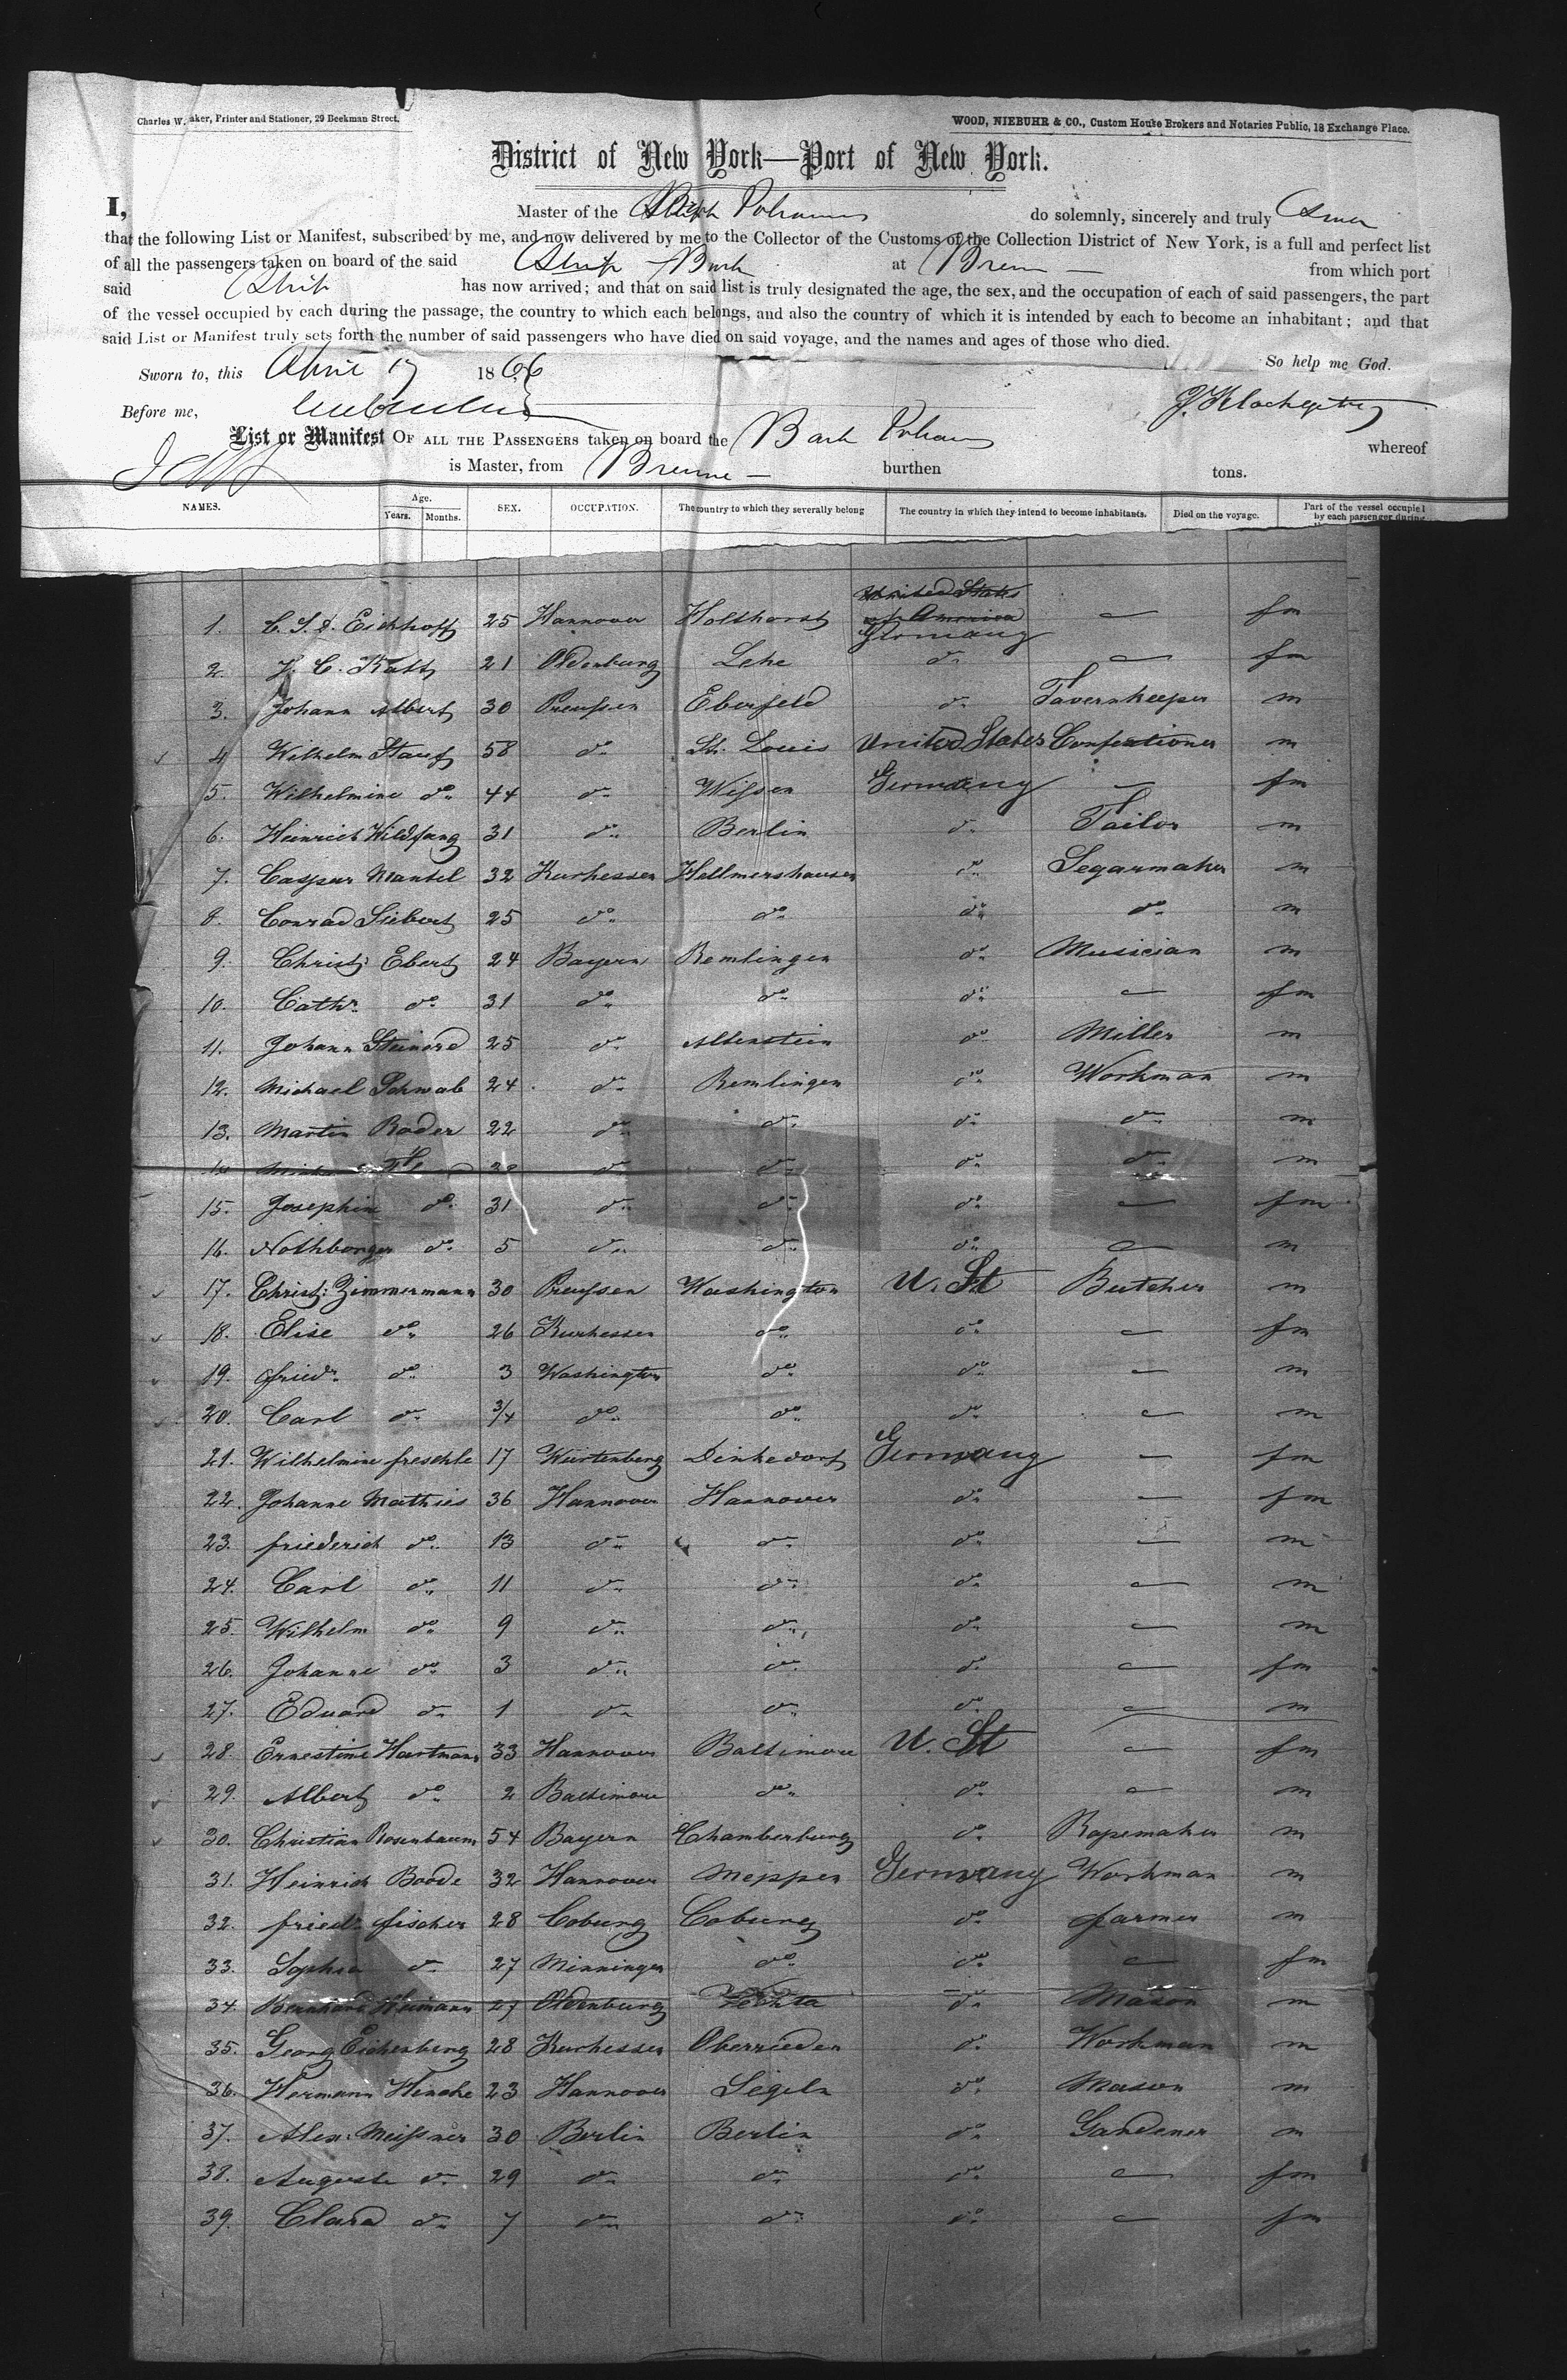 Charles W. aker, Printer and Stationer, 29 Beekman Street.
WOOD, NIEBUHR & CO., Custom House Brokers and Notaries Public, 18 Exchange Place.
District of New York—Port of New York.
I, Master of the do solemnly, sincerely and truly
that the following List or Manifest, subscribed by me, and now delivered by me to the Collector of the Customs of the Collection District of New York, is a full and perfect list
of all the passengers taken on board of the said Ship Bark at Brem from which port
said Ship has now arrived; and that on said list is truly designated the age, the sex, and the occupation of each of said passengers, the part
of the vessel occupied by each during the passage, the country to which each belongs, and also the country of which it is intended by each to become an inhabitant; and that
said List or Manifest truly sets forth the number of said passengers who have died on said voyage, and the names and ages of those who died.
So help me God.
Sworn to, this April 17 1866
Before me,
List or Manifest OF ALL THE PASSENGERS taken on board the Bark whereof
is Master, from burthen tons.
NAMES. Age. Years. Months. SEX. OCCUPATION. The country to which they severally belong The country in which they intend to become inhabitants. Died on the voyage. Part of the vessel occupied by each passenger during
United States
of America
1. C. S. D. Eichhoff 25 Hannover Holthorst Germany — fm
2. J. C. Katt 21 Oldenburg Lehe do — fm
3. Johann Albert 30 Preußen Eberfeld do Tavernkeeper m
4 Wilhelm Stauf 58 do St. Louis United States Confectioner m
5. Wilhelmine do 44 do Wißen Germany — fm
6. Heinrich Wildfang 31 do Berlin do Tailor m
7. Caspar Mantel 32 Kurhessen Hellmershausen do Segarmaker m
8. Conrad Siebert 25 do do do do m
9. Christ: Ebert 24 Bayern Remlingen do Musician m
10. Cathr. do 31 do do do — fm
11. Johann 25 do Altenstein do Miller m
12. Michael Schwab 24 do Remlingen do Workman m
13. Martin Roder 22 do do do do m
14 do do do do m
15. Josephin do 31 do do do — fm
16. do 5 do do do — m
17. Christ: Zimmermann 30 Preußen Washington U. St Butcher m
18. Elise do 26 Kurhessen do do — fm
19. Friedr. do 3 Washington do do — m
20. Carl do 3/4 do do do — m
21. Wilhelmine freschle 17 Würtenberg Denkedorf Germany — fm
22. Johanne Mathies 36 Hannover Hannover do — fm
23. friederich do 13 do do do — m
24. Carl do 11 do do do — m
25. Wilhelm do 9 do do do — m
26. Johanne do 3 do do do — fm
27. Eduard do 1 do do do — m
28. Ernestine Hartmann 33 Hannover Baltimore U. St — fm
29. Albert do 2 Baltimore do do — m
30. Christian Rosenbaum 54 Bayern Chamberburg do Ropemaker m
31. Heinrich Boode 32 Hannover Meppen Germany Workman m
32. friedr. fischer 28 Coburg Coburg do farmer m
33. Sophie do 27 Minningen do do — fm
34. Bernhard Heimann 27 Oldenburg Vechta do Mason m
35. Georg Eichenberg 28 Kurhessen Oberrieden do Workman m
36. Hermann Henche 23 Hannover Segeln do Mason m
37. Alex: Meißner 30 Berlin Berlin do Gardener m
38. Auguste do 29 do do do — fm
39. Clara do 7 do do do — fm